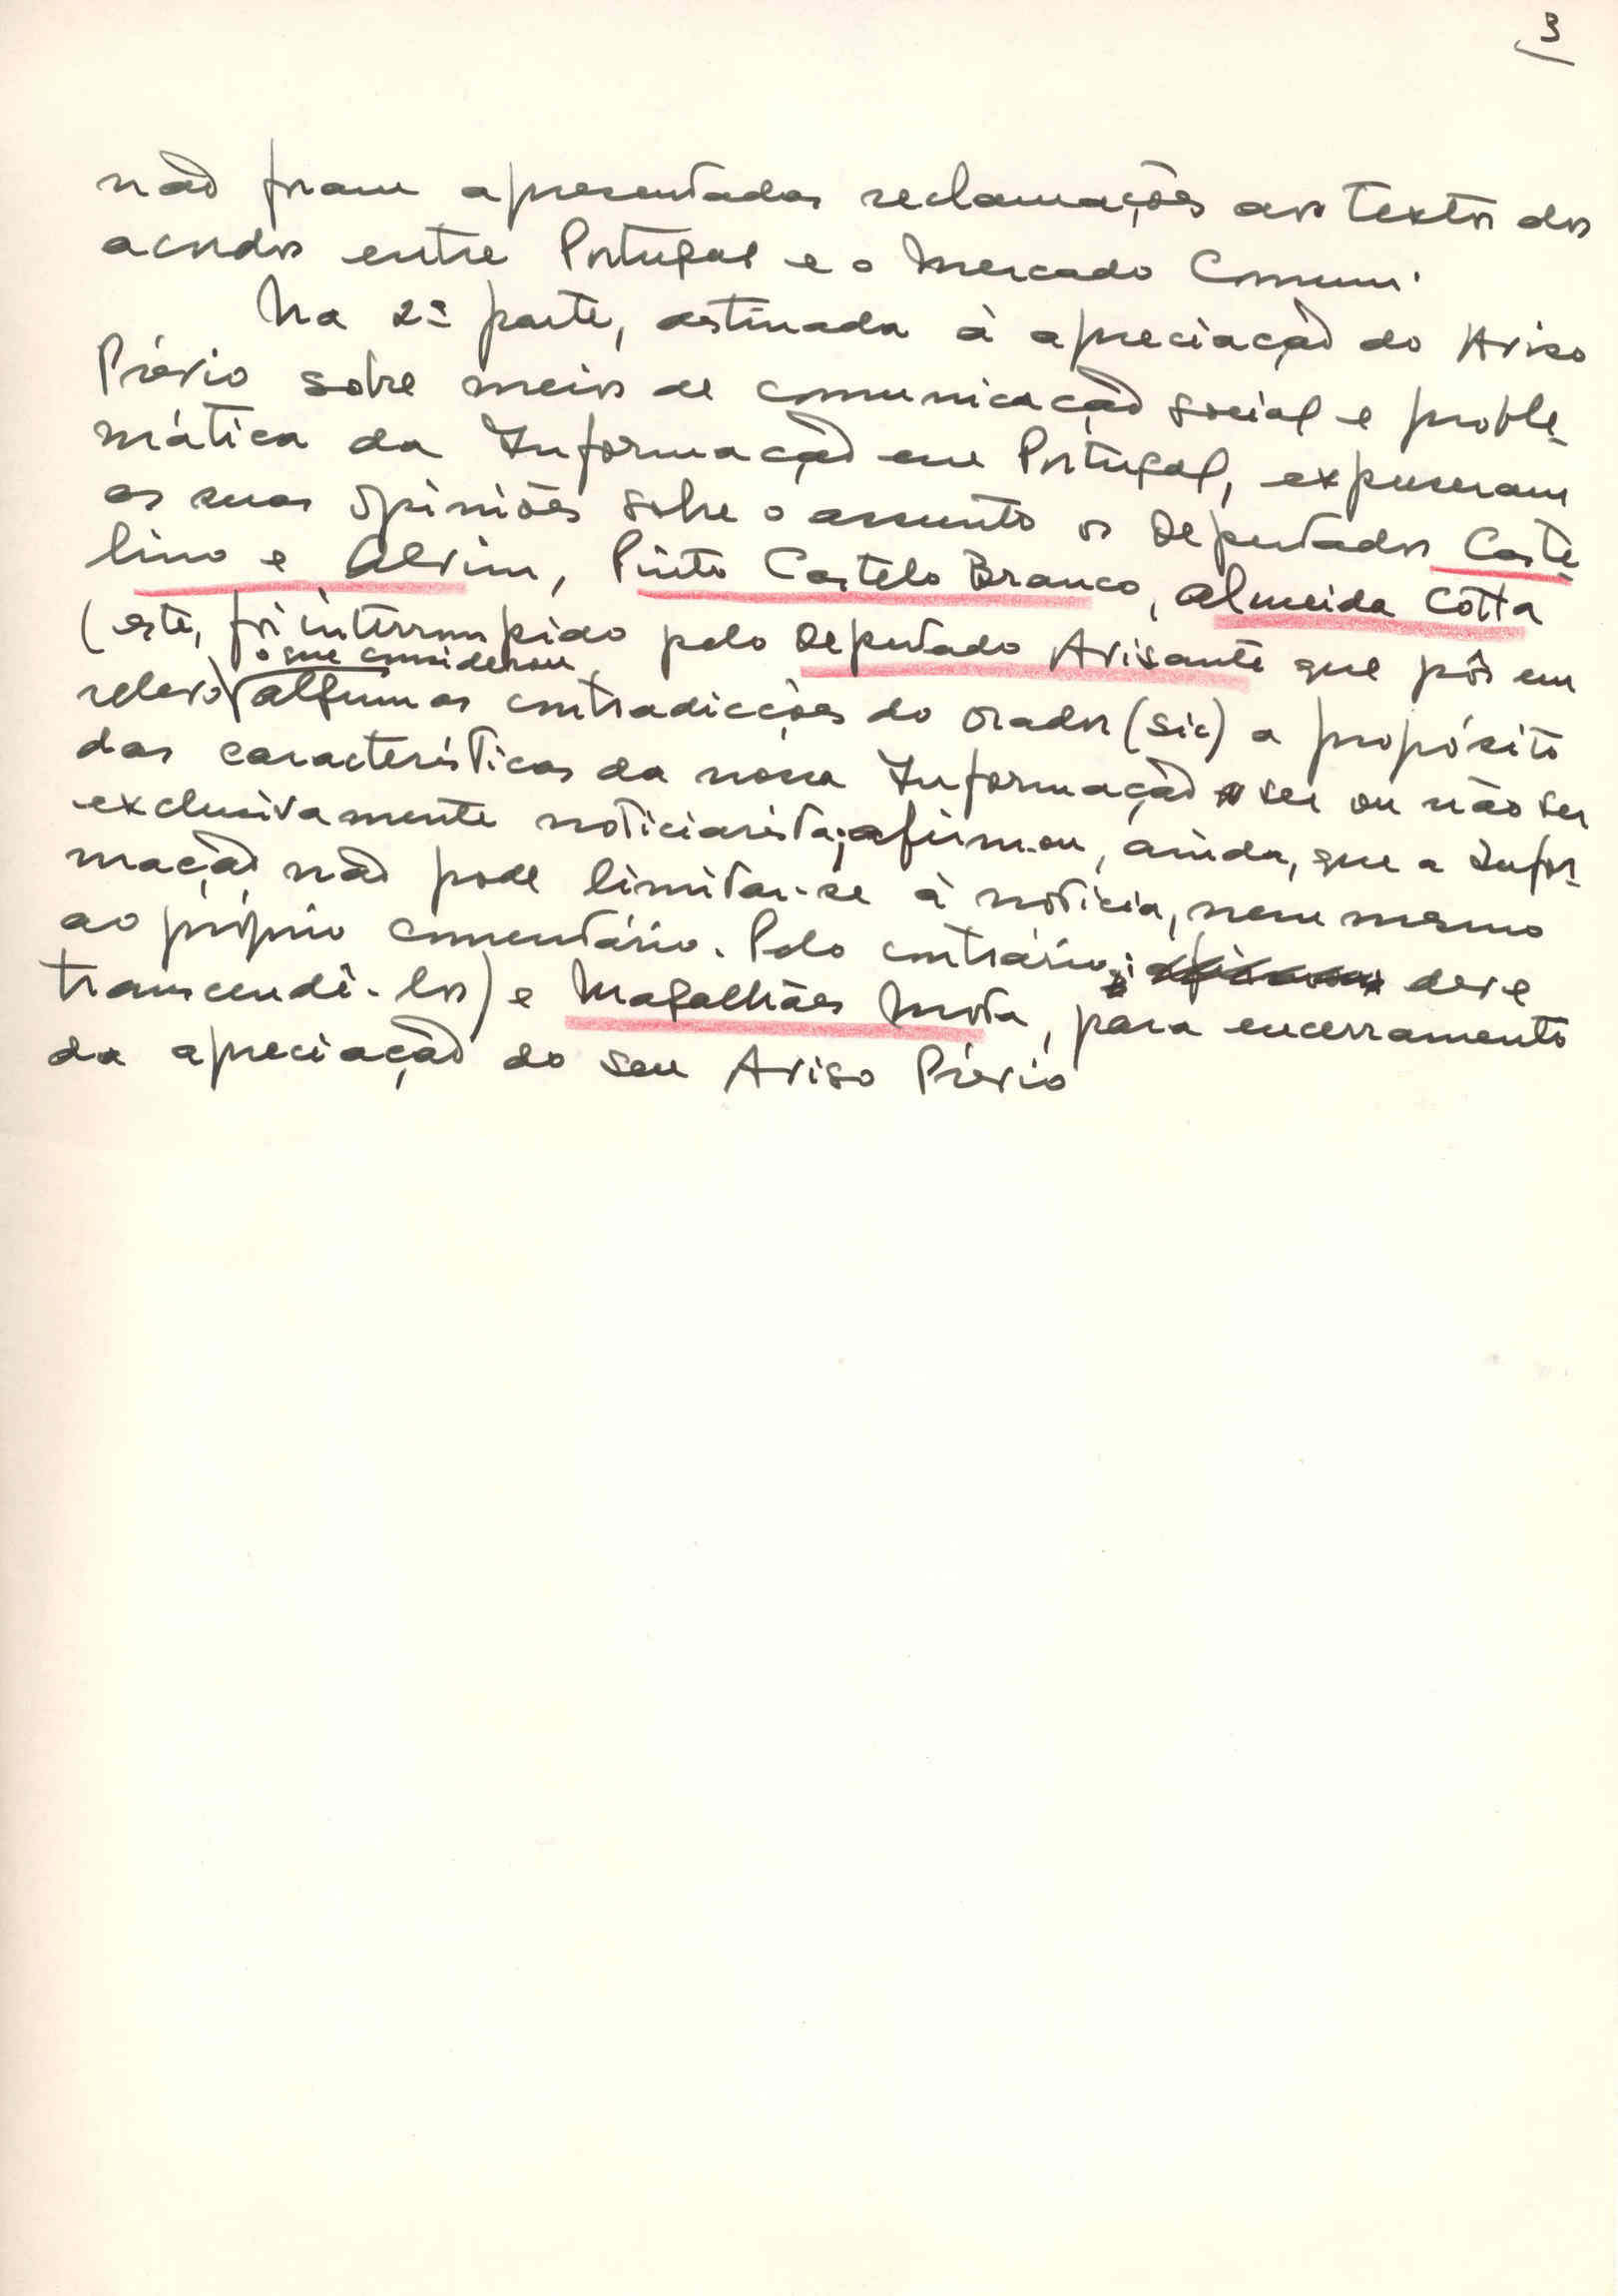 3
não foram apresentadas reclamações aos textos dos
acordos entre Portugal e o Mercado Comum.
Na 2ª parte, destinada à apreciação do Aviso
Prévio sobre meios de comunicação social e proble-
mática da Informação em Portugal, expuseram
as suas opiniões sobre o assunto os Deputados Caste-
lino e Alvim, Pinto Castelo Branco, Almeida Cotta
(este, foi interrompido pelo Deputado Avisante que pôs em
o que considerou
relevo algumas contradicções do orador (sic) a propósito
das características da nossa Informação ser ou não ser
exclusivamente noticiarista; afirmou, ainda, que a Infor-
mação não pode limitar-se à notícia, nem mesmo
ao próprio comentário. Pelo contrário: deve
transcendê-los) e Magalhães Mota, para encerramento
da apreciação do seu Aviso Prévio